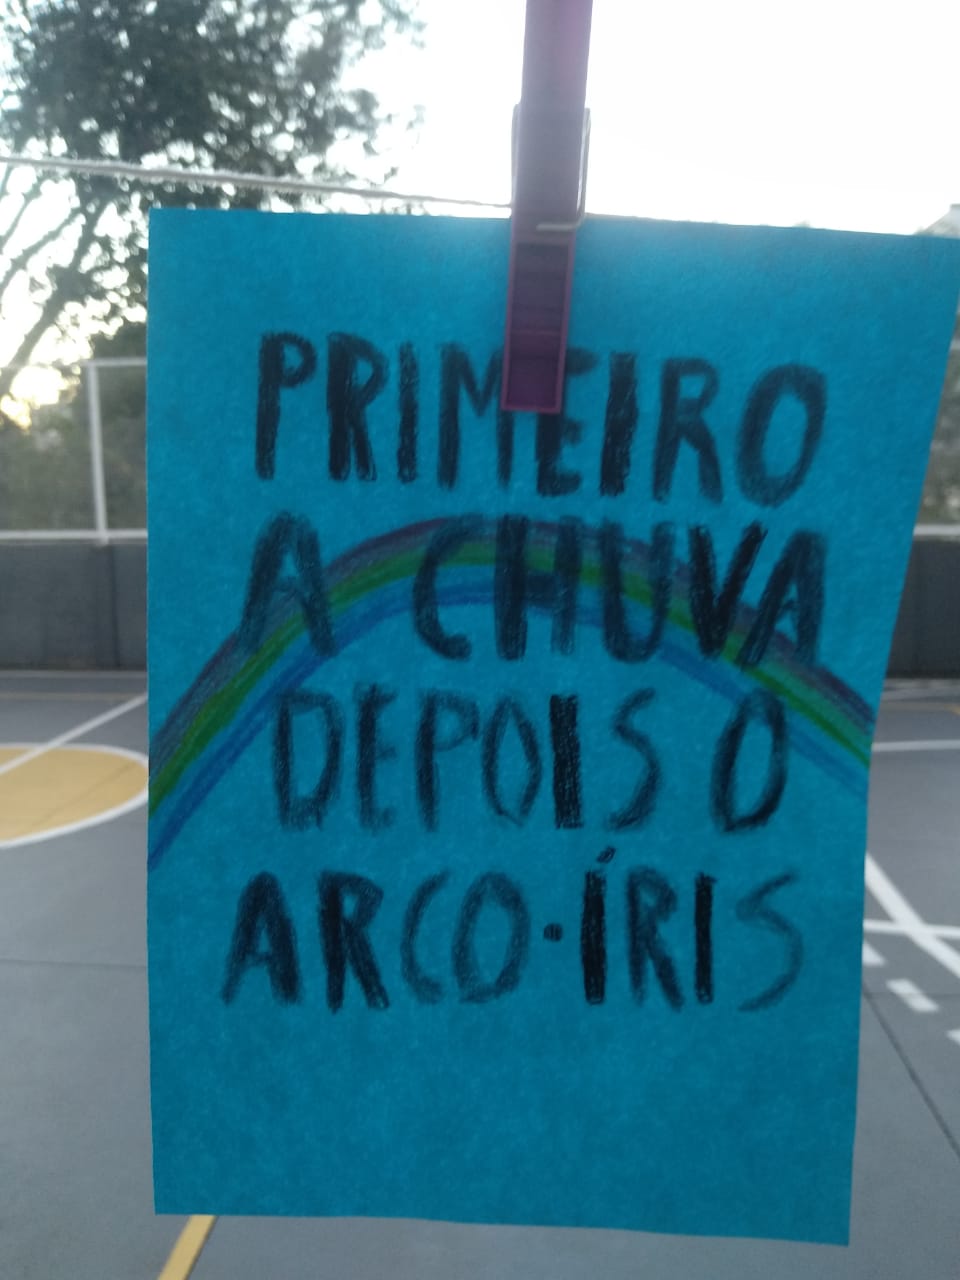 PRIMEIRO
A CHUVA
DEPOIS O
ARCO-ÍRIS